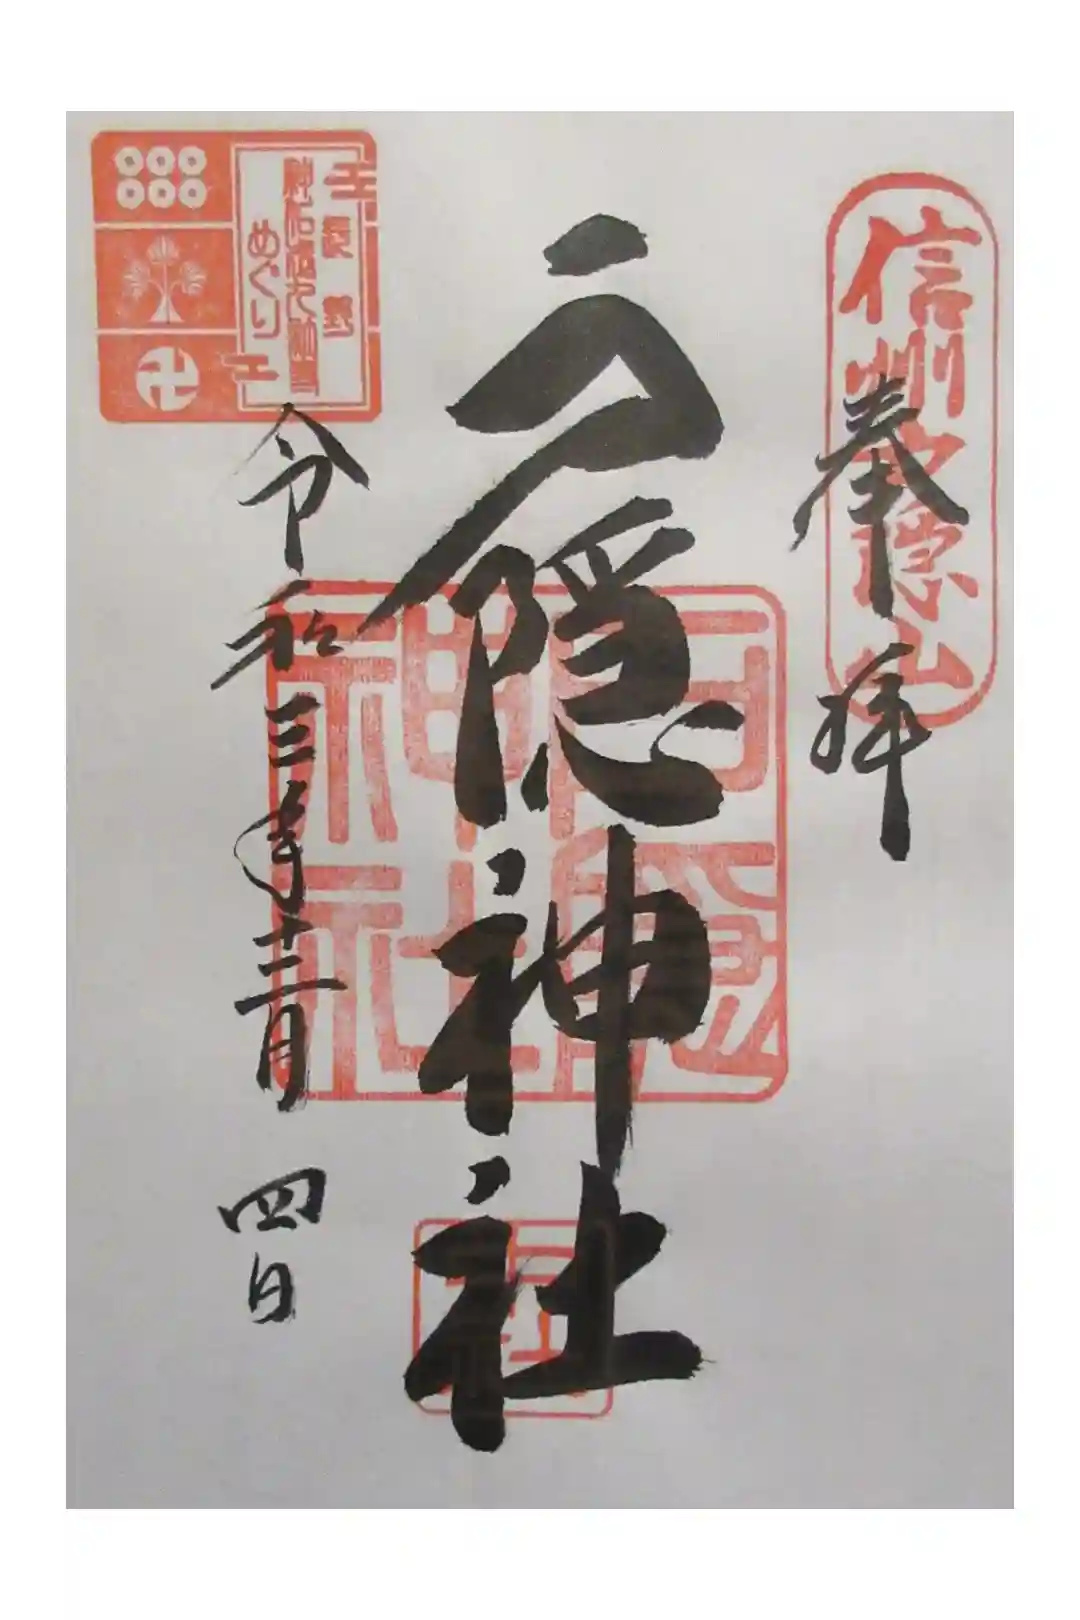 信州戸隠山
奉拝
戸隠神社
戸隠神社
令和三年十二月四日
めぐり